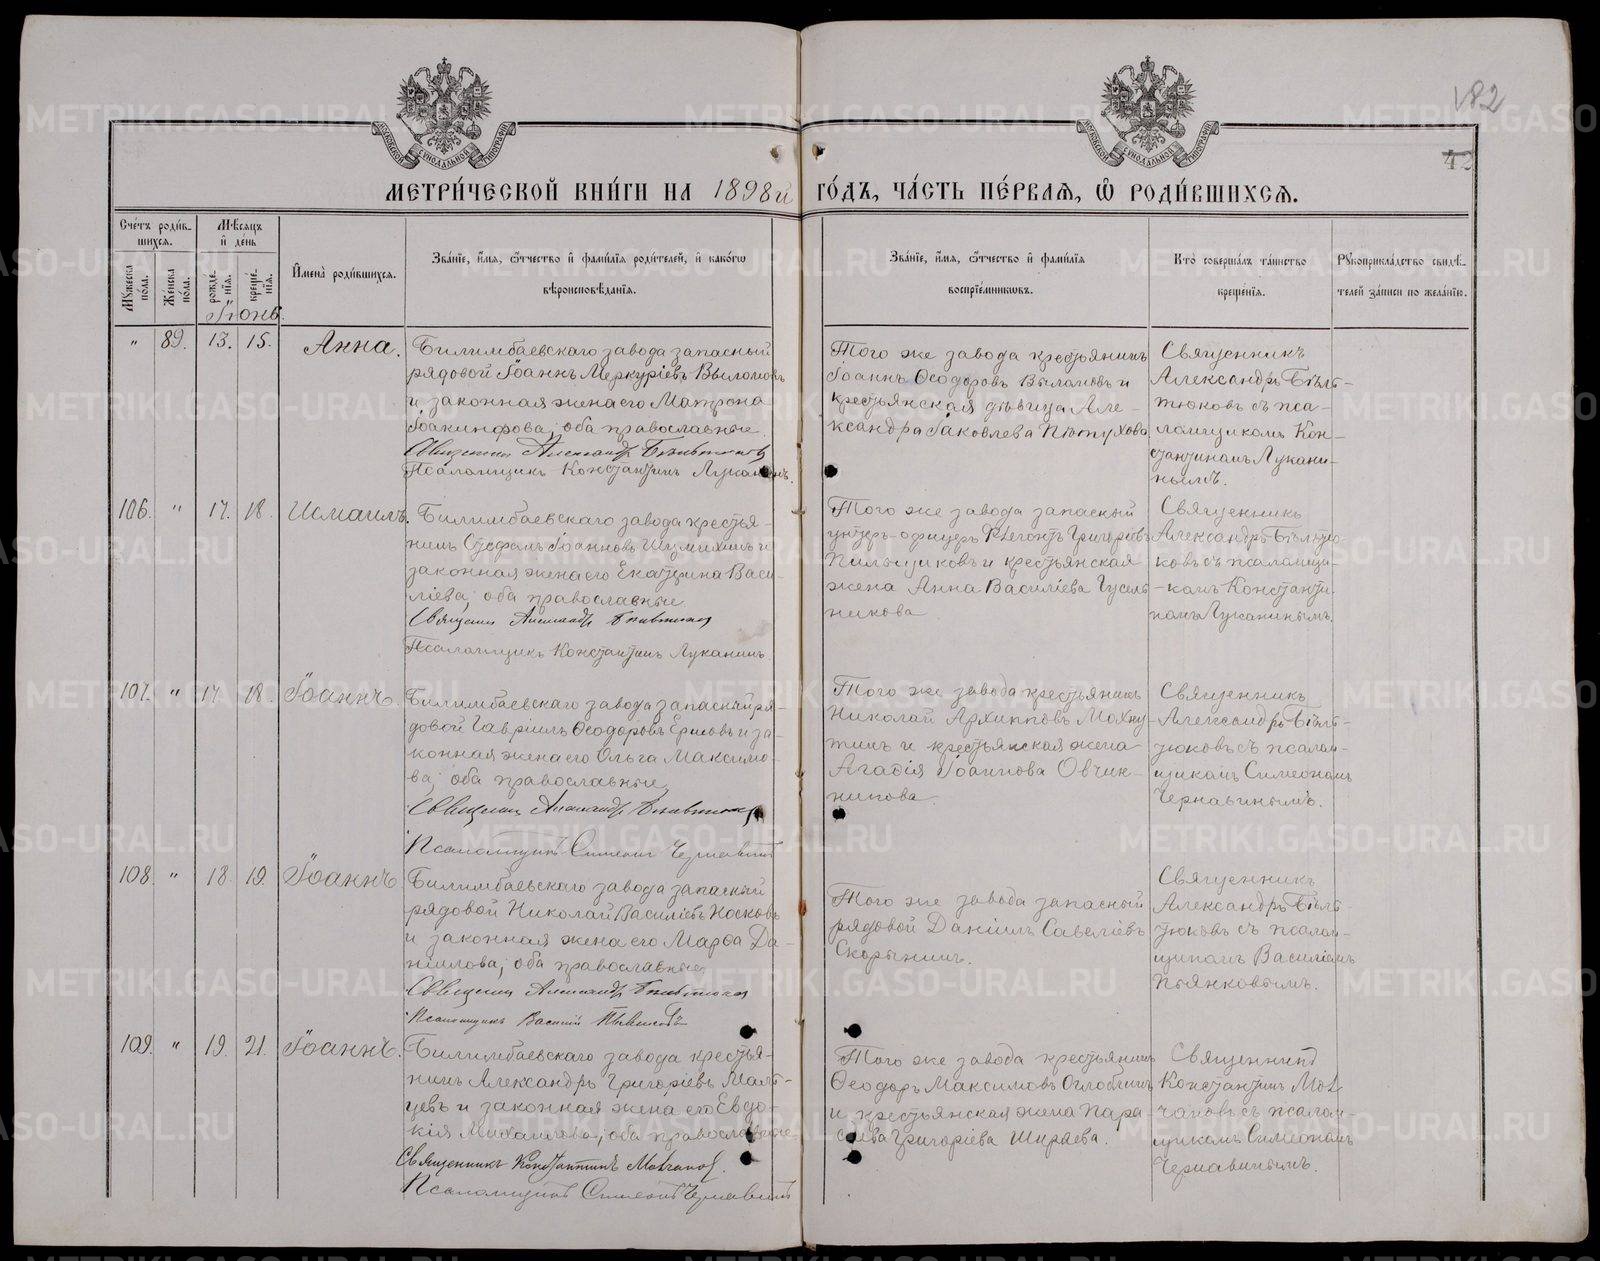 182
42
МОСКОВСКОЙ СѴНОДАЛЬНОЙ ТИПОГРАФІИ
МОСКОВСКОЙ СѴНОДАЛЬНОЙ ТИПОГРАФІИ
МЕТРИ́ЧЕСКОЙ КНИ́ГИ НА 1898й ГО́ДЪ, ЧА́СТЬ ПЕ́РВАѦ, Ѿ РОДИ́ВШИХСѦ.
Сче́тъ роди́в-
шихсѧ.
Мꙋжеска по́ла.
Же́нска по́ла.
Мѣ́сѧцъ
и҆ де́нь
рожде́нїѧ.
креще́нїѧ.
И҆мена̀ роди́вшихсѧ.
Зва́нїе, и҆́мѧ, ѻ҆́тчество и҆ фами́лїѧ роди́телей, и҆ како́гѡ
вѣроисповѣ́данїѧ.
Зва́нїе, и҆́мѧ, ѻ҆́тчество и҆ фами́лїѧ
воспрїе́мникѡвъ.
Кто̀ соверша́лъ та́инство
креще́нїѧ.
Рꙋкоприкла́дство свидѣ́-
телей за́писи по жела́нїю.
Іюнь.
" 89. 13. 15. Анна.
Билимбаевскаго завода запасный
рядовой Іоаннъ Меркуріевъ Выломовъ
и законная жена его Матрона
Іоакинфова, оба православные
Священник Александр
Псаломщикъ Константинъ Луканинъ.
Того же завода крестьянинъ
Іоаннъ Ѳеодоровъ Выломовъ и
крестьянская дѣвица Але-
ксандра Іаковлева Пѣтухова.
Священникъ
Александръ Бѣль-
тюковъ съ пса-
ломщикомъ Кон-
стантиномъ Лукани-
нымъ.
106. " 17. 18. Исмаилъ.
Билимбаевскаго завода крестья-
нинъ Стефанъ Іоанновъ Шумихинъ и
законная жена его Екатерина Васи-
ліева, оба православные
Священник Александр
Псаломщикъ Константинъ Луканинъ
Того же завода запасный
унтеръ-офицеръ Флегонтъ Григоріевъ
Пильщиковъ и крестьянская
жена Анна Василіева Гусель-
никова
Священникъ
Александръ Бѣльтю-
ковъ съ псаломщи-
комъ Константи-
номъ Луканинымъ.
107. " 17. 18. Іоаннъ.
Билимбаевскаго завода запасный ря-
довой Гавріилъ Ѳеодоровъ Ершовъ и за-
конная жена его Ольга Максимо-
ва, оба православные
Священник Александр
Псаломщикъ Симеонъ Чернавинъ
Того же завода крестьянинъ
Николай Архипповъ Махну-
тинъ и крестьянская жена
Агафія Іоаннова Овчин-
никова.
Священникъ
Александръ Бѣль-
тюковъ съ псалом-
щикомъ Симеономъ
Чернавинымъ.
108. " 18. 19. Іоаннъ
Билимбаевскаго завода запасный
рядовой Николай Василіевъ Носковъ
и законная жена его Марфа Да-
ніилова, оба православные
Священник Александр
Псаломщикъ Василій Пьянковъ
Того же завода запасный
рядовой Даніилъ Савеліевъ
Скорынинъ.
Священникъ
Александръ Бѣль-
тюковъ съ псалом-
щикомъ Василіемъ
Пьянковымъ.
109. " 19. 21. Іоаннъ.
Билимбаевскаго завода крестья-
нинъ Александръ Григоріевъ Маль-
цевъ и законная жена его Евдо-
кія Михаилова, оба православные
Священникъ Константинъ
Псаломщикъ Симеонъ Чернавинъ
Того же завода крестьянинъ
Ѳеодоръ Максимовъ Оглоблинъ
и крестьянская жена Пара-
скева Григоріева Ширяева.
Священникъ
Константинъ Мол-
чановъ съ псалом-
щикомъ Симеономъ
Чернавинымъ.
METRIKI.GASO-URAL.RU